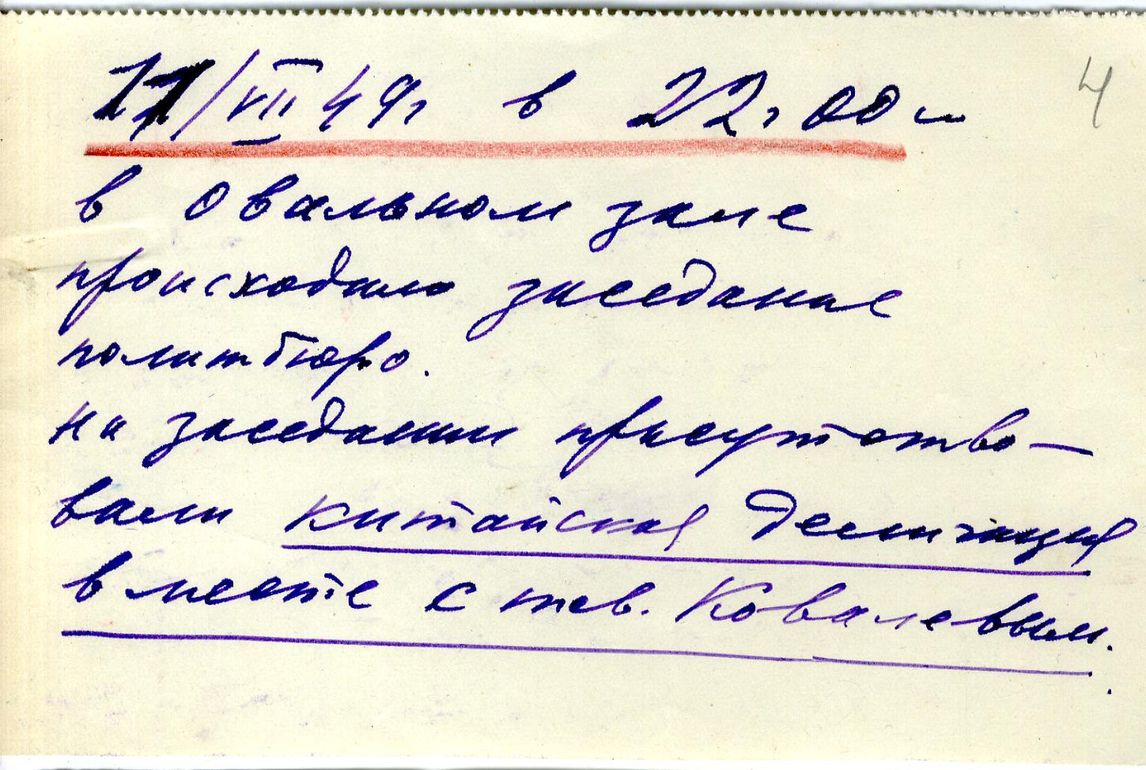 11/VII 49г в 22г 00 м
4
в Овальном зале
происходило заседание
политбюро.
на заседании присутство-
вали китайская делигация
вместе с тов. Ковалевым.